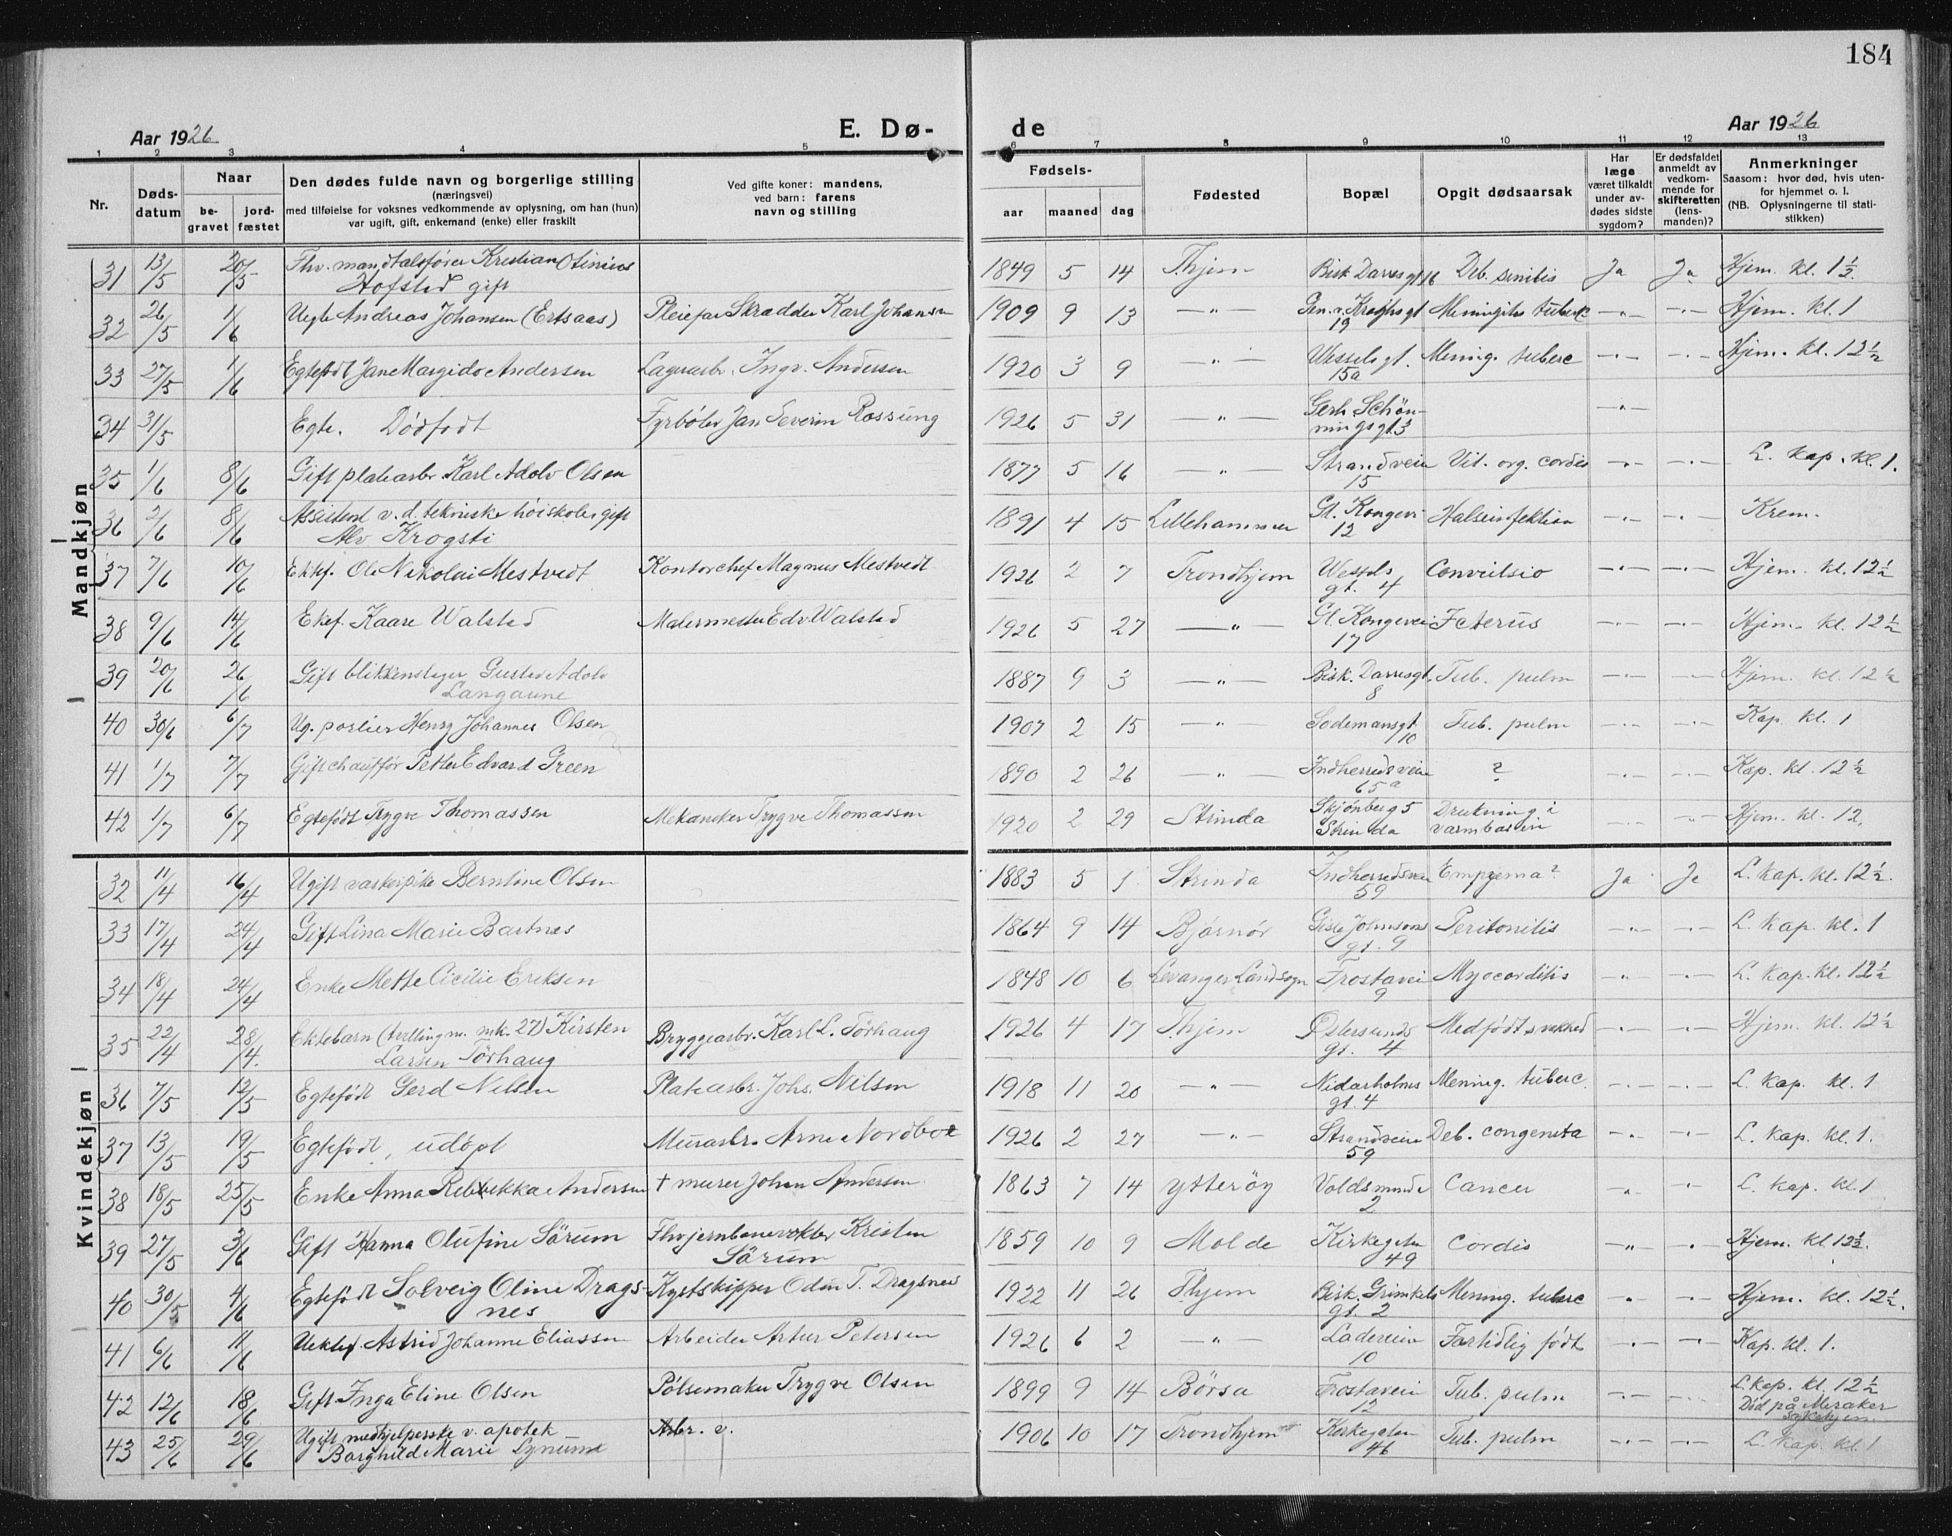 184
Aar 1926 E. Dø- de Aar 1926
1 2 3 4 5 6 7 8 9 10 11 12 13
Nr. Døds-datum Naar be-gravet jord-fæstet Den dødes fulde navn og borgerlige stilling (næringsvei) med tilføielse for voksnes vedkommende av oplysning, om han (hun) var ugift, gift, enkemand (enke) eller fraskilt Ved gifte koner: mandens, ved barn: farens navn og stilling Fødsels- aar maaned dag Fødested Bopæl Opgit dødsaarsak Har læge været tilkaldt under av-dødes sidste sygdom? Er dødsfaldet anmeldt av vedkom-mende for skifteretten (lens-manden)? Anmerkninger Saasom: hvor død, hvis uten-for hjemmet o. l. (NB. Oplysningerne til stati-stikken)
Mandkjøn
31 13/5 20/5 Fhv. mandtalsfører Kristian Otinius Hofstad gift 1849 5 14 Thjem Bisk. Darresgt 16 Deb. senilis Ja Ja Hjem. kl. 1 1/2
32 26/5 1/6 Uegte Andreas Johansen (Ertsaas) Pleiefar Skrædder Karl Johansen 1909 9 13 -"- Gen. v. Kroghsgt 19 Meningitis tuberc -"- -"- Hjem. kl. 1
33 27/5 1/6 Egtefødt Jane Margido Andersen Lagerarbr. Ingv. Andersen 1920 3 9 -"- Wesselsgt. 15a Mening. tuberc -"- -"- Hjem. kl. 12 1/2
34 31/5 Egte. Dødfødt Fyrbøter Jan Severin Rossung 1926 5 31 -"- Gerh. Schøn-ningsgt. 3 -"-
35 1/6 8/6 Gift platearbr Karl Adolv Olsen 1877 5 16 -"- Strandveien 15 Vit. org. cordis -"- -"- L. kap. kl. 1.
36 2/6 8/6 Assistent v. d. tekniske høiskole, gift Alv Krogsti 1891 4 15 Lillehammer Gl. Kongevei 12 Halsinfektion -"- -"- Krem.
37 7/6 10/6 Ektef. Ole Nikolai Mestvedt Kontorchef Magnus Mestvedt 1926 2 7 Trondhjem Wessels gt. 4 Convulsio -"- -"- Hjem. kl. 12 1/2
38 9/6 14/6 Ektef. Kaare Walstad Malermester Edv. Walstad 1926 5 27 -"- Gl. Kongevei 17 Icterus -"- -"- Hjem. kl. 12 1/2
39 20/6 26/6 Gift blikkenslager Gustav Adolv Langaune 1887 9 3 -"- Bisk. Darresgt. 8 Tub. pulm -"- -"- Hjem. kl. 12 1/2
40 30/6 6/7 Ug. portier Henry Johannes Olsen 1907 2 15 -"- Sodemansgt. 10 Tub. pulm -"- -"- Kap. kl. 1
41 1/7 7/7 Gift chauffør Petter Edvard Green 1890 2 26 -"- Indherredsveien 65a ? -"- -"- Kap. kl. 12 1/2
42 1/7 6/7 Egtefødt Trygve Thomassen Mekaniker Trygve Thomassen 1920 2 29 Strinda Skjønberg 5 Strinda Drukning i varmbassin -"- -"- Hjem. kl. 12.
Kvindekjøn
32 11/4 16/4 Ugift vaskepike Berntine Olsen 1883 5 1 Strinda Indherredsvei 59 Empyema? Ja Ja L. kap. kl. 12 1/2.
33 17/4 24/4 Gift Lina Marie Bartnes 1864 9 14 Bjørnør Gisle Johnsons gt. 9 Peritonitis -"- -"- L. kap. kl. 1
34 18/4 24/4 Enke Mette Cicilie Eriksen 1848 10 6 Levanger Landsogn Frostavei 9 Myocarditis -"- -"- L. kap. kl. 12 1/2
35 22/4 28/4. Ektebarn (tvilling m. mk. 27) Kirsten Larsen Tørhaug Bryggearbr. Karl L. Tørhaug 1926 4 17 Thjem Østersunds gt. 4 Medfødt svakhed -"- -"- Hjem. kl. 12 1/2
36 7/5 12/5 Egtefødt Gerd Nilsen Platearbr. Johs. Nilsen 1918 11 20 -"- Nidarholms gt. 4 Mening. tuberc. -"- -"- L. kap. kl. 1
37 13/5 19/5 Egtefødt, udøpt Murarbr. Arne Nordbo 1926 2 27 -"- Strandveien 59 Deb. congenita -"- -"- L. kap. kl. 1.
38 18/5 25/5 Enke Anna Rebekka Andersen + murer Johan Andersen 1863 7 14 Ytterøy Voldsminde 2 Cancer " -"- L. kap. kl. 1
39 27/5 3/6 Gift Hanna Olufine Sørum Fhv jernbanevokter Kristen Sørum 1859 10 9 Molde Kirkegaten 49 Cordis -"- -"- Hjem. kl. 12 1/2.
40 30/5 4/6 Egtefødt Solveig Oline Drags-nes Kystskipper Odin T. Dragsnes 1922 11 26 Thjem Bisk. Grimkels gt. 2 Mening. tuberc -"- -"- Hjem. kl. 12 1/2.
41 6/6 11/6 Uektef. Astrid Johanne Eliassen Arbeider Artur Petersen 1926 6 2 -"- Ladeveien 10 Fortidlig født -"- -"- Kap. kl. 1.
42 12/6 18/6 Gift Inga Eline Olsen Pølsemaker Trygve Olsen 1899 9 14 Børsa Frostaveien 12 Tub. pulm -"- -"- L. kap. kl. 12 1/2 Død på Meraker
43 25/6 29/6 Ugift medhjelperske v. apotek Borghild Marie Lynum Arbr. v. 1906 10 17 Trondhjem Kirkegaten 46 Tub. pulm -"- -"- L. kap. kl. 1